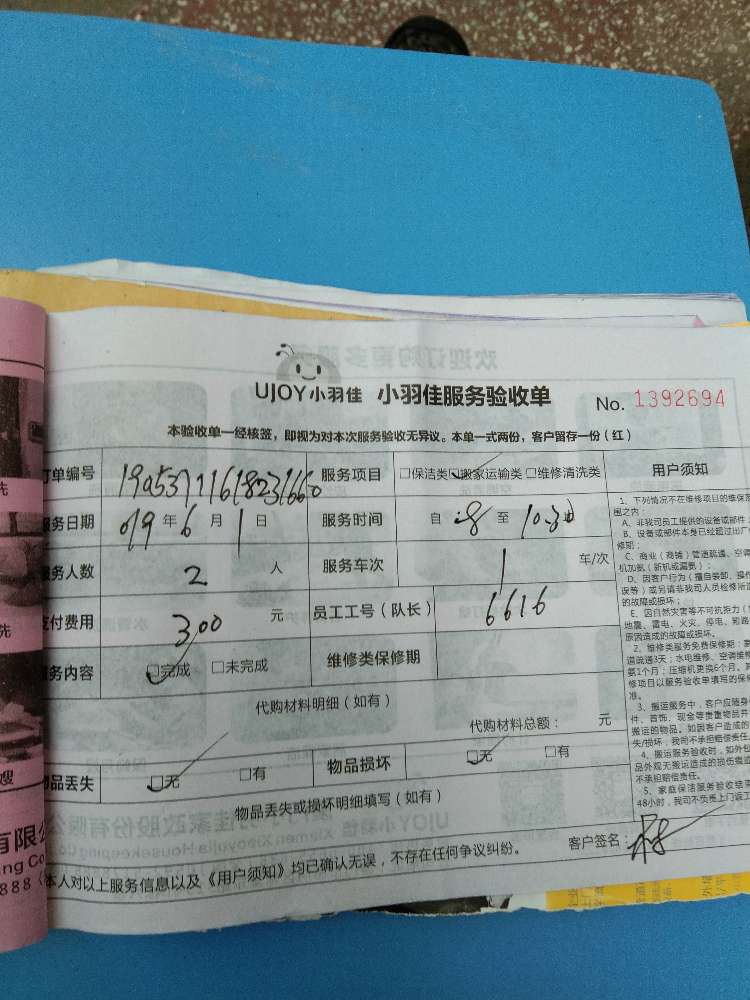 UJOY小羽佳 小羽佳服务验收单 No. 1392694
本验收单一经核签，即视为对本次服务验收无异议。本单一式两份，客户留存一份（红）
订单编号 服务项目 □保洁类 ☑搬家运输类 □维修清洗类 用户须知
服务日期 019年6月1日 服务时间 自:8至10:30
服务人数 2人 服务车次 1车/次
支付费用 300元 员工工号（队长） 6616
服务内容 ☑完成 □未完成 维修类保修期
代购材料明细（如有）
代购材料总额： 元
物品丢失 ☑无 □有 物品损坏 ☑无 □有
物品丢失或损坏明细填写（如有）
客户签名：
本人对以上服务信息以及《用户须知》均已确认无误，不存在任何争议纠纷。
1、下列情况不在维修项目的维保范
围之内：
A、非我司员工提供的设备或部件
B、设备或部件本身已经超过出厂
修期；
C、商业（商铺）管道疏通、空调
机加氨（新机或漏氨）；
D、因客户行为（擅自装卸、操作
误等）或另请非我司人员检修所造
的故障或损坏；
E、因自然灾害等不可抗拒力（
地震、雷电、火灾、停电、
原因造成的故障或损坏。
2、维修类服务免费保修期：
道疏通3天；水电维修、空调维修
氨1个月；压缩机更换6个月。
修项目以服务验收单填写的保
准。
3、搬运服务中，客户应随身
件、首饰、现金等贵重物品并
搬运的物品。如因客户造成的
失/损坏，我司不承担赔偿责任
4、搬运服务验收时，如外包
品外观无搬运造成的损伤痕迹
不承担赔偿责任。
5、家庭保洁服务验收结束
48小时，我司不负责上门返工
先
先
嫂
有限公
ing Co
888